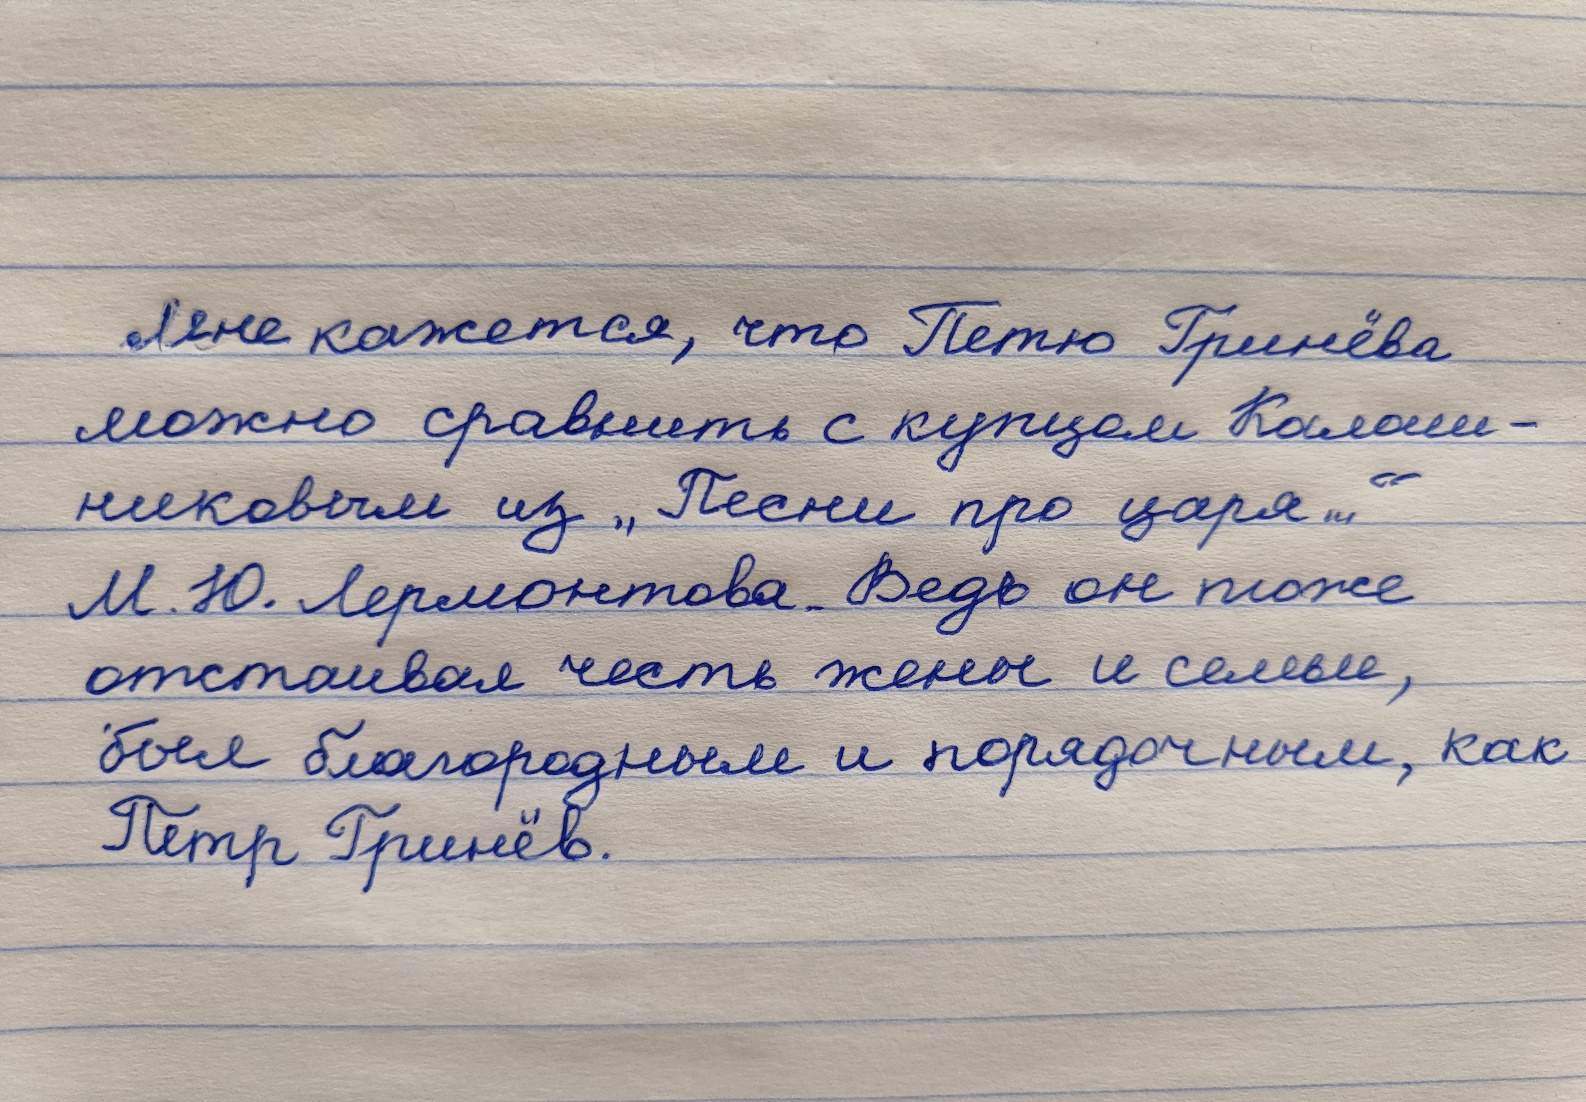 Мне кажется, что Петю Гринёва
можно сравнить с купцом Калаш-
никовым из „Песни про царя..."
М. Ю. Лермонтова. Ведь он тоже
отстаивал честь жены и семьи,
был благородным и порядочным, как
Петр Гринёв.